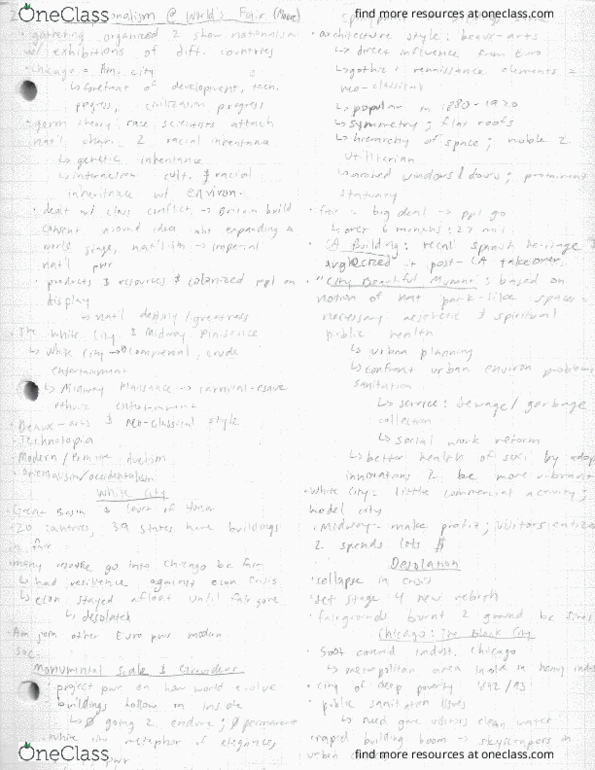 OneClass
find more resources at oneclass.com
nationalism @ World's Fair (Movie)
· gathering organized 2 show nationalism
w/ exhibitions of diff. countries
· Chicago = Am. city
↳ of development, tech.
progress, civilization progress
· germ theory: race scientists attach
nat'l char. 2 racial inheritance
↳ genetic inheritance
↳ interaction cult. & racial
inheritance w/ environ.
· dealt w/ class conflict → Britain build
around idea abt expanding
world stage, nat'lism → imperial
nat'l pwr
· products & resources & colonized ppl on
display
→ nat'l destiny/greatness
· The White City & Midway Plaisance
↳ White City → commercial, crude
entertainment
↳ Midway Plaisance → carnival-esque
ethnic entertainment
· Beaux-arts & neo-classical style
· Technotopia
· Modern/Primitive dualism
· orientalism/occidentalism
White City
· Great Basin & Court of Honor
· 20 countries, 39 states have buildings
in fair
· many go into Chicago bc fair
↳ had resilience against econ crisis
↳ econ stayed afloat until fair gone
↳ desolated
· Am join other Euro pwrs modern
soc.
Monumental Scale & Grandeur
· project pwr on how world evolve
· buildings hollow in inside
↳ ∅ going 2 endure; ∅ permanent
· White City metaphor of elegance,
pwr
· architecture style: beaux-arts
↳ direct influence from Euro
↳ gothic & renaissance elements =
neo-classical
↳ popular in 1880-1920
↳ symmetry; flat roofs
↳ hierarchy of space; noble 2
utilitarian
↳ arched windows/doors; prominent
statuary
· fair = big deal → ppl go
↳ over 6 months: 27 mil
· CA Building: recall spanish heritage &
anglecized it post-CA takeover
· "City Beautiful Mvmnt": based on
notion of nat park-like spaces =
necessary aesthetic & spiritual
public health
↳ urban planning
↳ confront urban environ problems
sanitation
↳ service: sewage/garbage
collection
↳ social work reform
↳ better health of soci by adop
innovations 2 be more vibrant
· White City: little commercial activity;
model city
· Midway: make profit; visitors
2 spends lots $
Desolation
· collapse in crisis
· set stage 4 new rebirth
· fairgrounds burnt 2 ground
Chicago: The Black City
· soot covrd indust. Chicago
↳ metropolitan area in heavy indus
· city of deep poverty 1892/93
· public sanitation issues
↳ need give visitors clean water
· rapid building boom → skyscrapers in
urban
OneClass
find more resources at oneclass.com